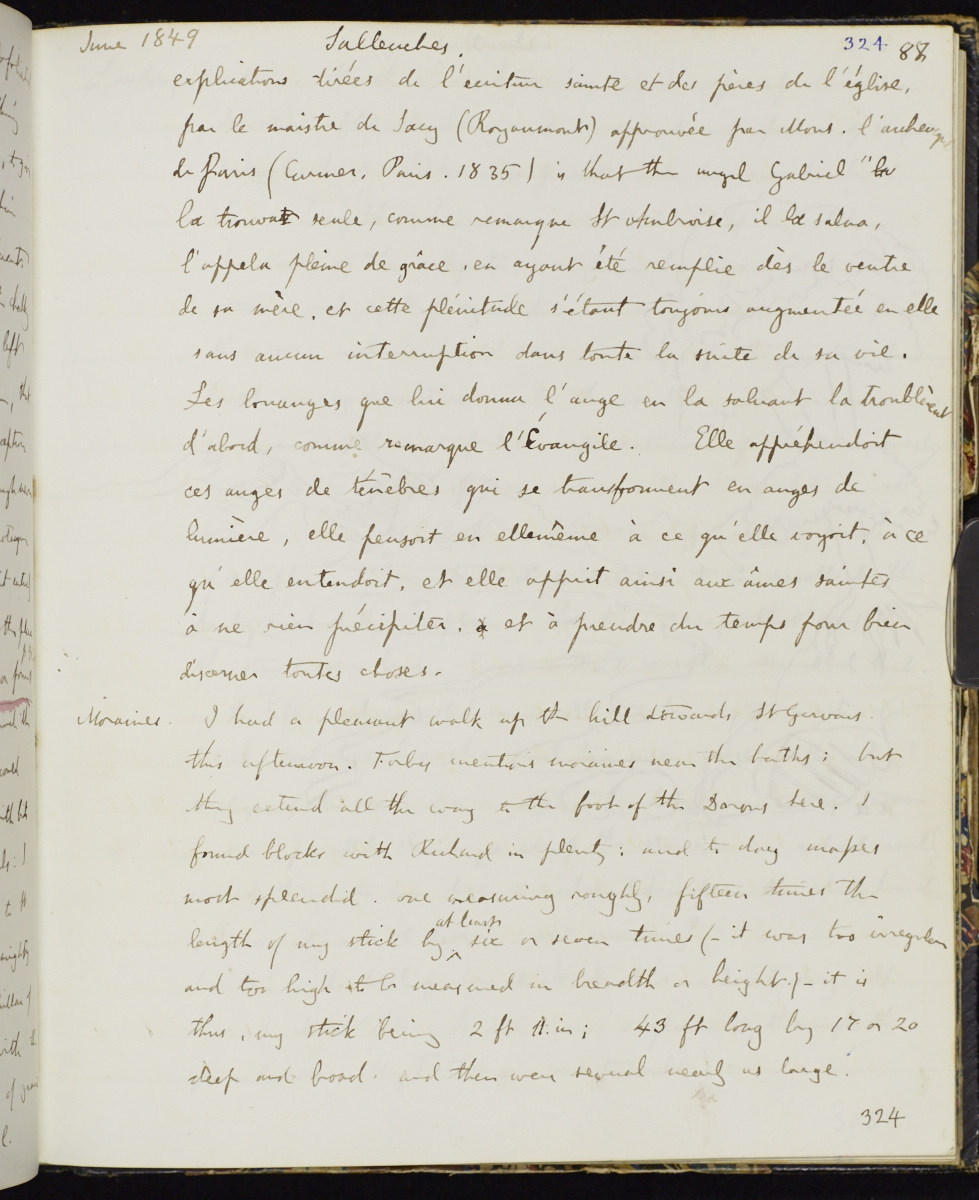 June 1849 Sallenches. 324 88
explications tirées de l'ecriture sainte et des pères de l'église,
par le maistre de Sacy (Royaumont) approuvée par Mons. l'archevqe
de Paris (Curmer, Paris. 1835) is that the angel Gabriel "
la trouvat seule, comme remarque St Ambroise, il la salua,
l'appela pleine de grâce, en ayant été remplie dès le ventre
de sa mère, et cette plénitude s'étant toujours augmentée en elle
sans aucun interruption dans toute la suite de sa vie.
Les louanges que lui donna l'ange en la saluant la troublèrent
d'abord, comme remarque l'Évangile. Elle appréhendoit
ces anges de ténèbres qui se transforment en anges de
lumière, elle pensoit en ellemême à ce qu'elle voyoit, à ce
qu'elle entendoit, et elle apprit ainsi aux âmes saintes
à ne rien précipiter. et à prendre du temps pour bien
discerner toutes choses.
Moraines. I had a pleasant walk up the hill towards St Gervais
this afternoon. Forbes mentions moraines near the baths; but
they extend all the way to the foot of the Dorons here. I
found blocks with Richard in plenty: and to day masses
most splendid. one measuring roughly, fifteen times the
length of my stick by at least six or seven times (- it was too irregular
and too high to be measured in breadth or height.) - it is
thus, my stick being 2 ft 11. in; 43 ft long by 17 or 20
deep and broad. and there were several nearly as large.
324